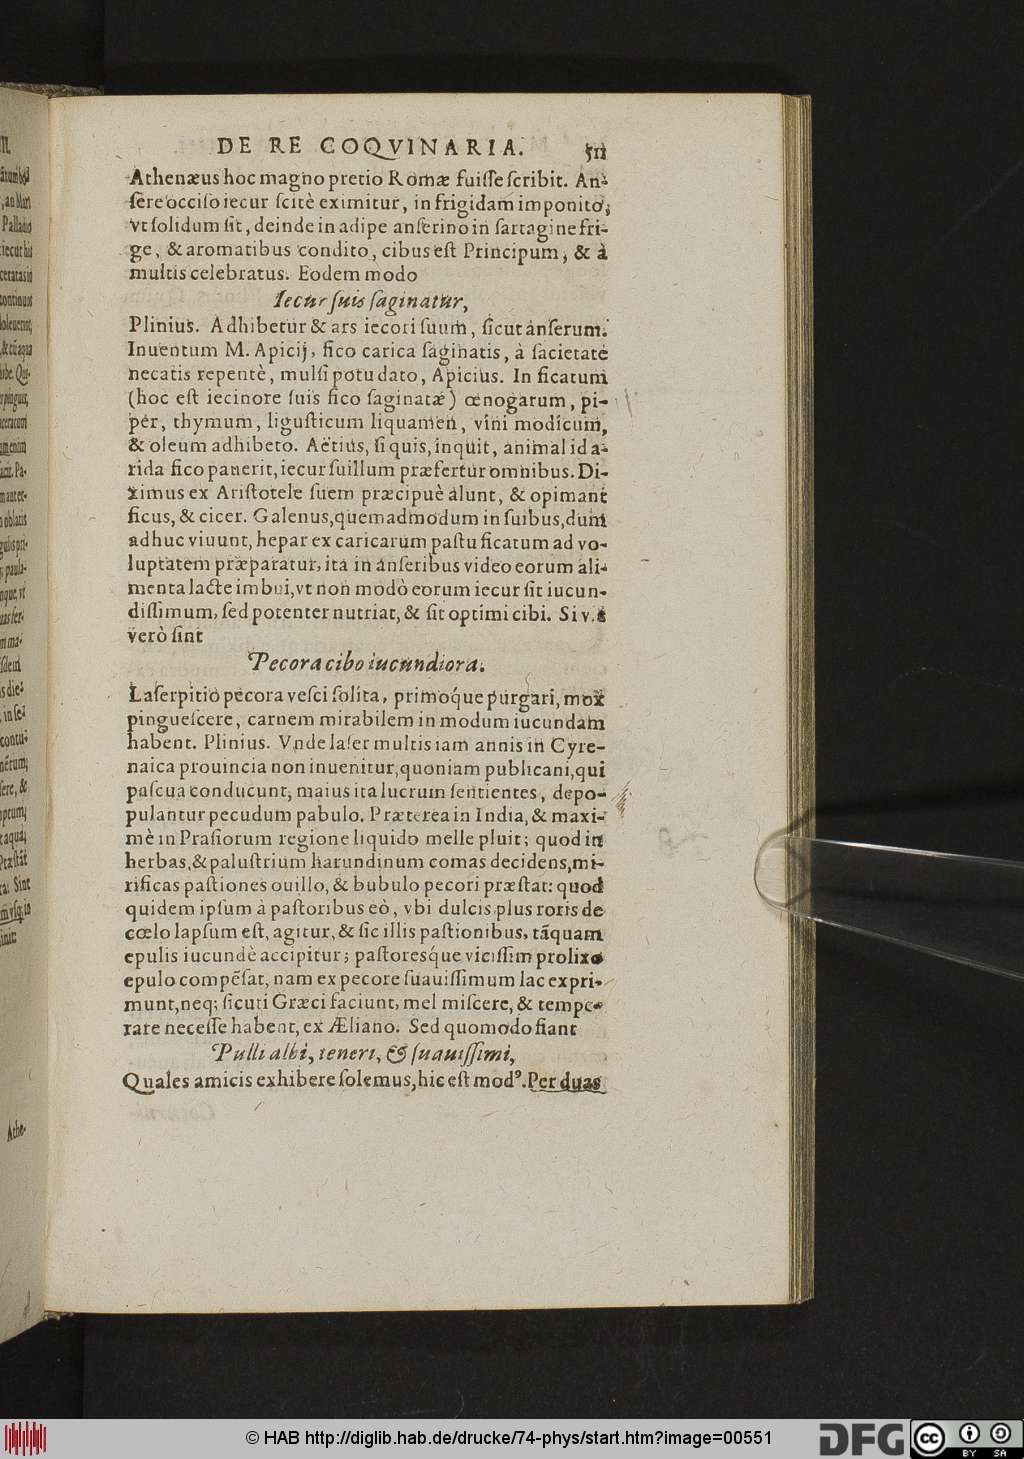 DE RE COQVINARIA. 511
Athenæus hoc magno pretio Romæ fuiſſe ſcribit. An-
ſere occiſo iecur ſcitè eximitur, in frigidam imponito,
vt ſolidum ſit, deinde in adipe anſerino in ſartagine fri-
ge, & aromatibus condito, cibus eſt Principum, & à
multis celebratus. Eodem modo
Iecur ſuis ſaginatur,
Plinius. Adhibetur & ars iecori ſuum, ſicut anſerum.
Inuentum M. Apicij, fico carica ſaginatis, à ſacietate
necatis repentè, mulſi potu dato, Apicius. In ficatum
(hoc eſt iecinore ſuis fico ſaginatæ) œnogarum, pi-
per, thymum, liguſticum liquamen, vini modicum,
& oleum adhibeto. Aëtius, ſi quis, inquit, animal id a-
rida fico pauerit, iecur ſuillum præfertur omnibus. Di-
ximus ex Ariſtotele ſuem præcipuè alunt, & opimant
ficus, & cicer. Galenus, quemadmodum in ſuibus, dum
adhuc viuunt, hepar ex caricarum paſtu ficatum ad vo-
luptatem præparatur, ita in anſeribus video eorum ali-
menta lacte imbui, vt non modò eorum iecur ſit iucun-
diſſimum, ſed potenter nutriat, & ſit optimi cibi. Si v.
verò ſint
Pecora cibo iucundiora.
Laſerpitio pecora veſci ſolita, primoq́ue purgari, mox
pingueſcere, carnem mirabilem in modum iucundam
habent. Plinius. Vnde laſer multis iam annis in Cyre-
naica prouincia non inuenitur, quoniam publicani, qui
paſcua conducunt, maius ita lucrum ſentientes, depo-
pulantur pecudum pabulo. Præterea in India, & maxi-
mè in Praſiorum regione liquido melle pluit; quod in
herbas, & paluſtrium harundinum comas decidens, mi-
rificas paſtiones ouillo, & bubulo pecori præſtat: quod
quidem ipſum à paſtoribus eò, vbi dulcis plus roris de
cœlo lapſum eſt, agitur, & ſic illis paſtionibus, tãquam
epulis iucundè accipitur; paſtoresq́ue viciſſim prolixo
epulo compẽſat, nam ex pecore ſuauiſſimum lac expri-
munt, neq; ſicuti Græci faciunt, mel miſcere, & tempe-
rare neceſſe habent, ex Æliano. Sed quomodo fiant
Pulli albi, teneri, & ſuauiſſimi,
Quales amicis exhibere ſolemus, hic eſt modꝰ. Per duas
© HAB http://diglib.hab.de/drucke/74-phys/start.htm?image=00551
DFG
cc BY SA